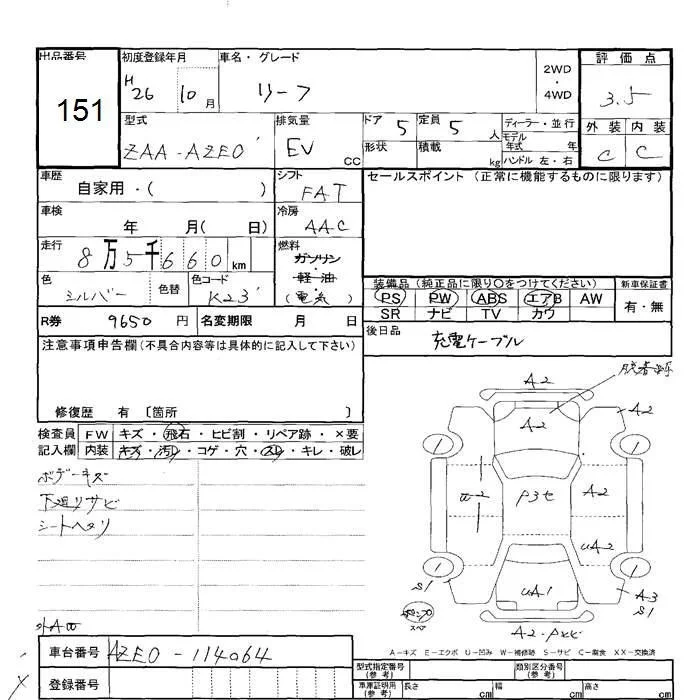 出品番号
151
初度登録年月
H
26 10月
車名・グレード
リーフ
2WD
・
4WD
評価点
3.5
外装 内装
C C
型式
ZAA-AZE0
排気量
EV
CC
ドア 5
定員 5 人
ディーラー・並行
モデル
年式 年
形状
積載 kg
ハンドル 左・右
車歴
自家用・( )
シフト
FAT
セールスポイント (正常に機能するものに限ります)
車検
年 月( 日)
冷房
AAC
走行
8万5千660km
燃料
ガソリン
・軽油
(電気)
色
シルバー
色替
色コード
K23
装備品 (純正品に限り〇をつけてください)
新車保証書
PS PW ABS エアB AW
有・無
SR ナビ TV カワ
R券 9650 円
名変期限 月 日
後日品
充電ケーブル
注意事項申告欄 (不具合内容等は具体的に記入して下さい)
修復歴 有 〔箇所 〕
検査員 FW キズ・飛石・ヒビ割・リペア跡・×要
記入欄 内装 キズ・汚レ・コゲ・穴・スレ・キレ・破レ
ボデーキズ
下廻リサビ
シートヘタリ
A2
A2
A2
A2
P3セ
A2
UA2
UA1
A3
S1
S1
1
1
1
1
スペア
A-キズ E-エクボ U-凹み W-補修跡 S-サビ C-腐食 XX-交換済
車台番号 AZE0-114064
登録番号
型式指定番号
(参考)
類別区分番号
(参考)
車庫証明用
(参考)
長さ cm 幅 cm 高さ cm